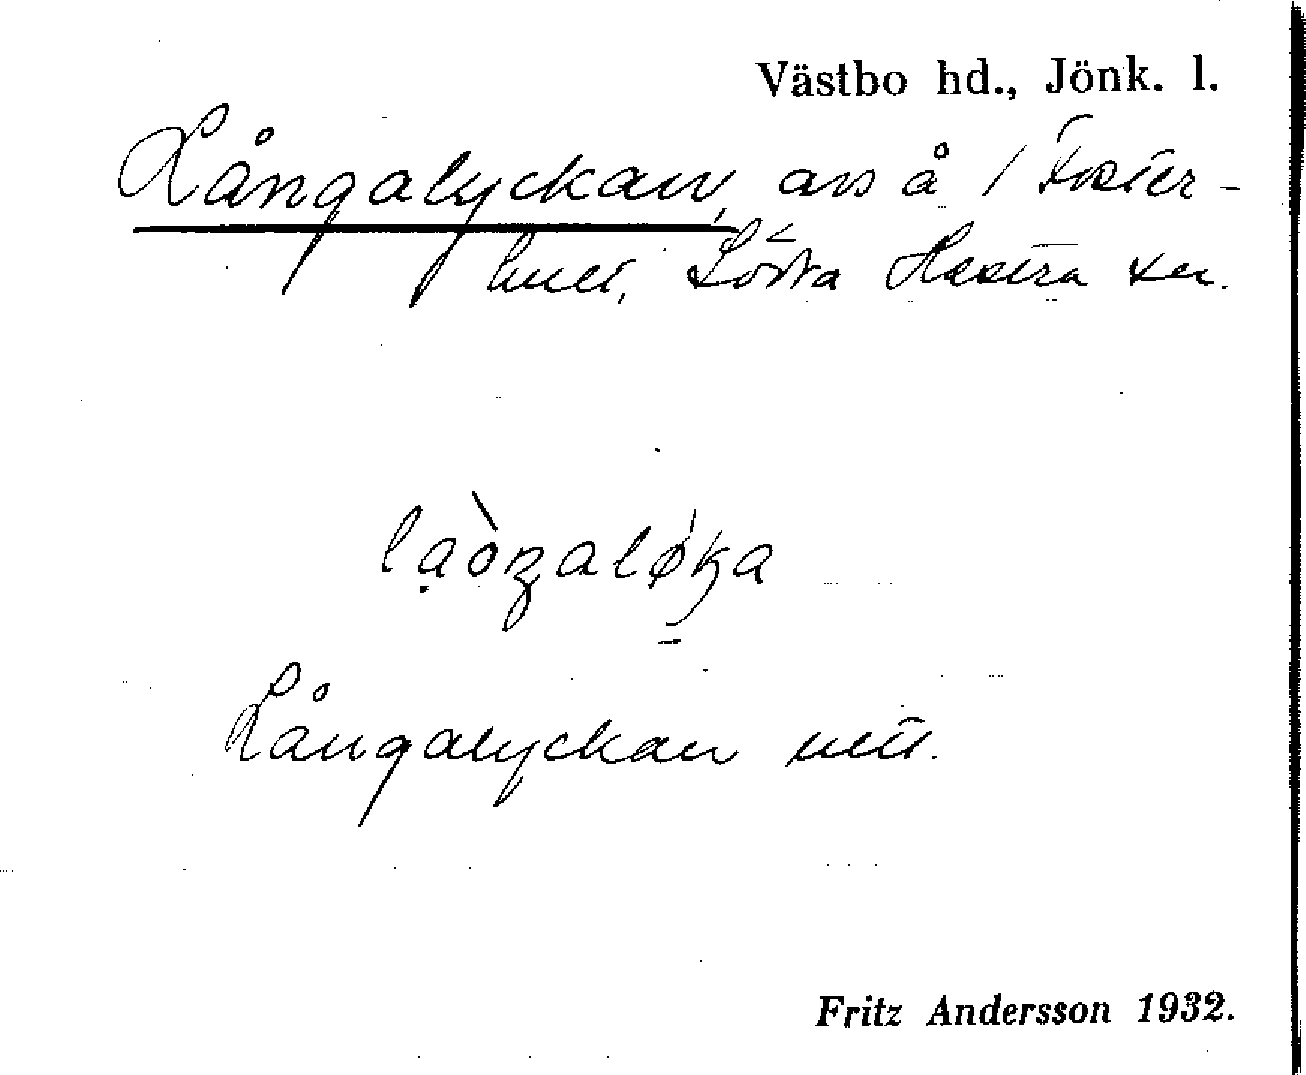 Västbo hd., Jönk. l.
Långalyckan, avs å 1 Foster-
hult, Södra Hestra sn.
laòŋalǿka
Långalyckan utt.
Fritz Andersson 1932.